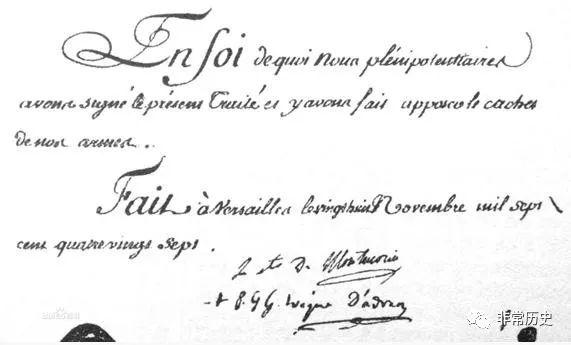 En foi de quoi nous plénipotentiaires
avons signé le présent Traité et y avons fait apposer le cachet
de nos armes.
Fait à Versailles le vingt huit Novembre mil sept
cent quatre vingt sept.
cte De Montmorin
P. G. G. eveque D'adran
非常历史